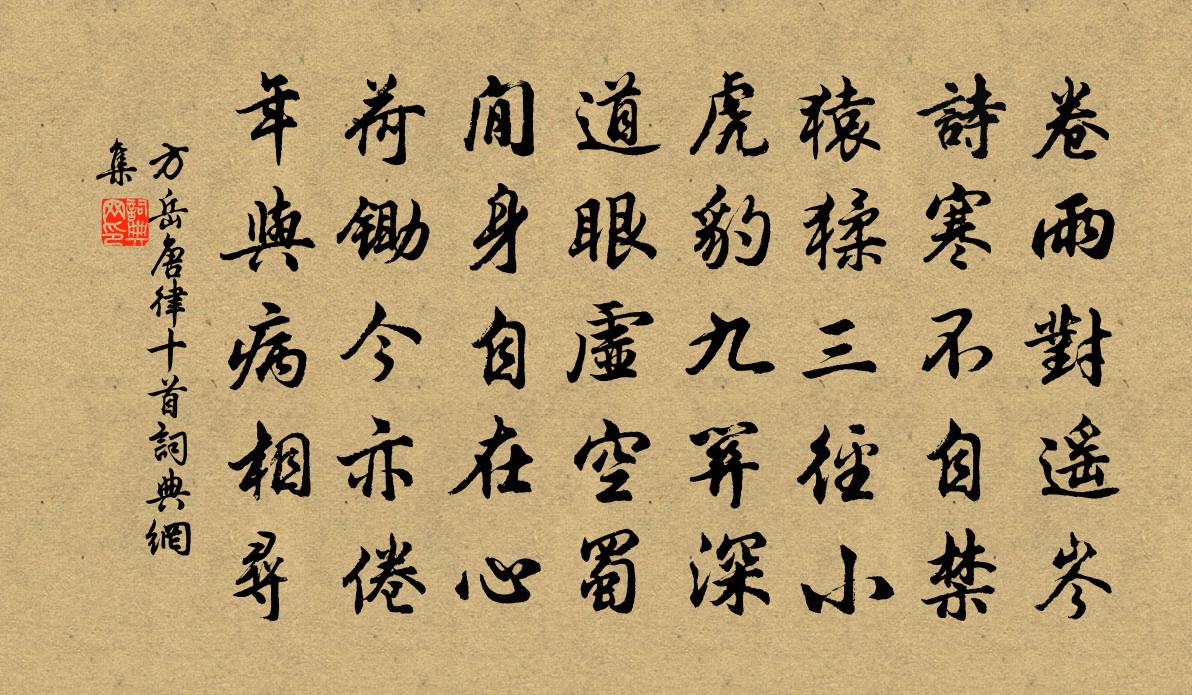 卷雨對遥岑
詩寒不自禁
猿猱三徑小
虎豹九關深
道眼虛空蜀
閒身自在心
荷鋤今亦倦
年與病相尋
方岳唐律十首詞典網
集
詞典
网印